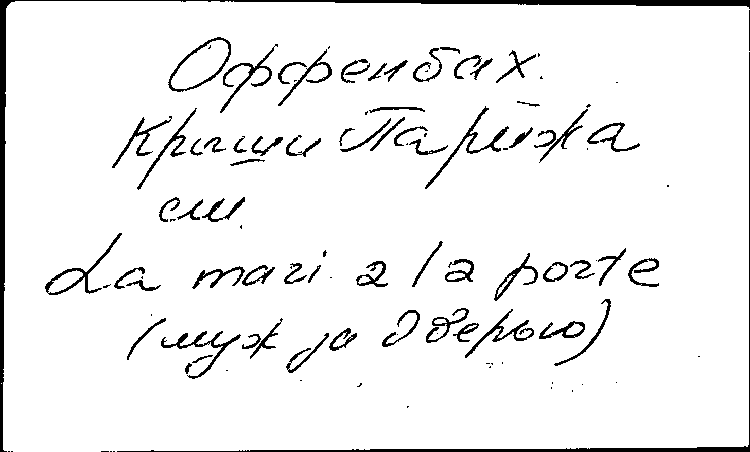 Оффенбах.
Крыши Парижа
см.
La mari a la porte
(муж за дверью)